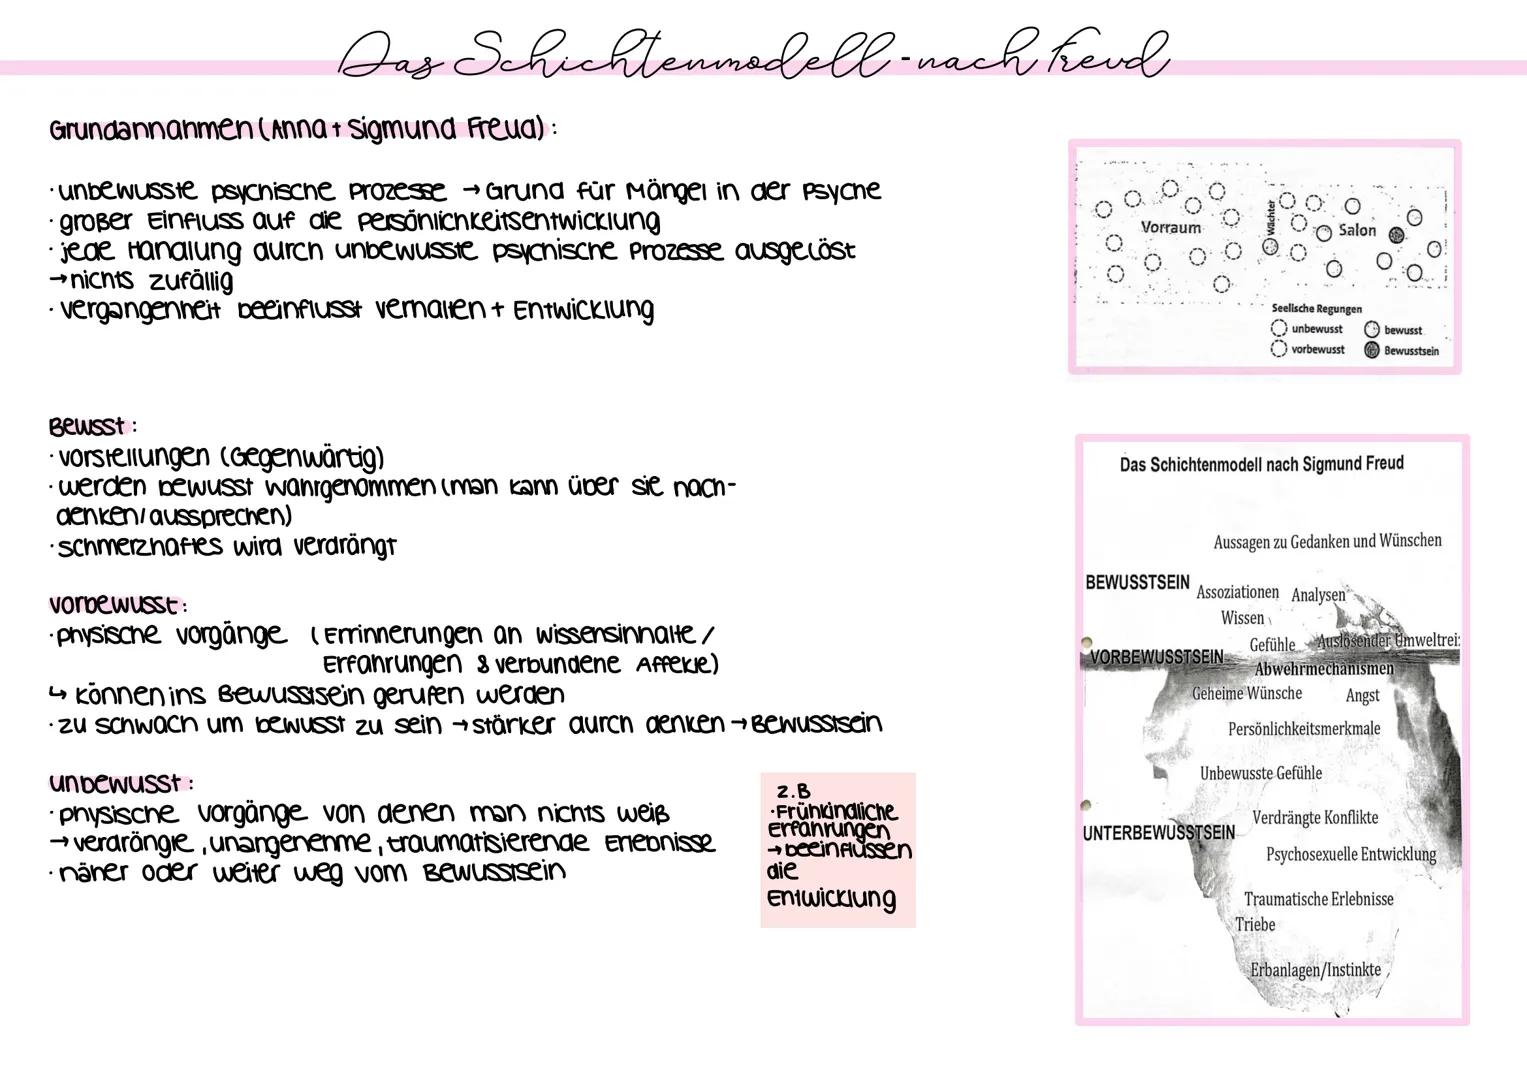 Das Schichtenmodell - nach Freud
Grundannahmen (Anna + Sigmund Freud):
· unbewusste psychische Prozesse → Grund für Mängel in der Psyche
· großer Einfluss auf die Persönlichkeitsentwicklung
· jede Handlung durch unbewusste psychische Prozesse ausgelöst
→ nichts zufällig
· Vergangenheit beeinflusst Verhalten + Entwicklung
Bewsst:
· Vorstellungen (Gegenwärtig)
· werden bewusst wahrgenommen (man kann über sie nach-
denken/aussprechen)
· schmerzhaftes wird verdrängt
Vorbewusst:
· physische Vorgänge (Errinnerungen an Wissensinhalte /
Erfahrungen & verbundene Affekte)
↳ können ins Bewusstsein gerufen werden
· zu schwach um bewusst zu sein → stärker durch denken → Bewusstsein
unbewusst:
· physische Vorgänge von denen man nichts weiß
→ verdrängte, unangenehme, traumatisierende Erlebnisse
· näher oder weiter weg vom Bewusstsein
z.B
· Frühkindliche
Erfahrungen
→ beeinflussen
die
Entwicklung
Vorraum
Wächter
Salon
Seelische Regungen
unbewusst
bewusst
vorbewusst
Bewusstsein
Das Schichtenmodell nach Sigmund Freud
Aussagen zu Gedanken und Wünschen
BEWUSSTSEIN
Assoziationen Analysen
Wissen
Gefühle Auslösender Umweltreiz
VORBEWUSSTSEIN
Abwehrmechanismen
Geheime Wünsche Angst
Persönlichkeitsmerkmale
Unbewusste Gefühle
Verdrängte Konflikte
UNTERBEWUSSTSEIN
Psychosexuelle Entwicklung
Traumatische Erlebnisse
Triebe
Erbanlagen/Instinkte